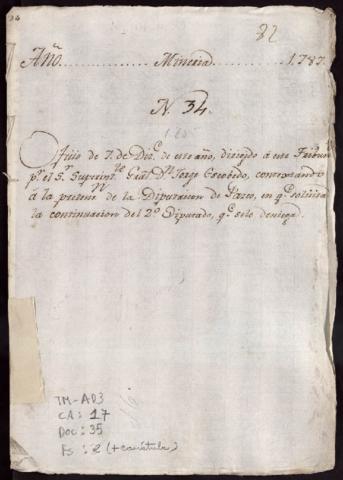 82
Año.............. Mineria .............. 1787.
N. 34.
Oficio de 7. de Dic.e de este año, dirigido á este Tribun.l
p.r el S.r Superint.te Gral D.n Jorge Escobedo, contextando
á la preten.n de la Diputacion de Pasco, en q.e solicita
la continuacion del 2.o Diputado, q.e se le deniega.
TM-AD3
CA: 17
DOC: 35
Fs: 2 (+ carátula)